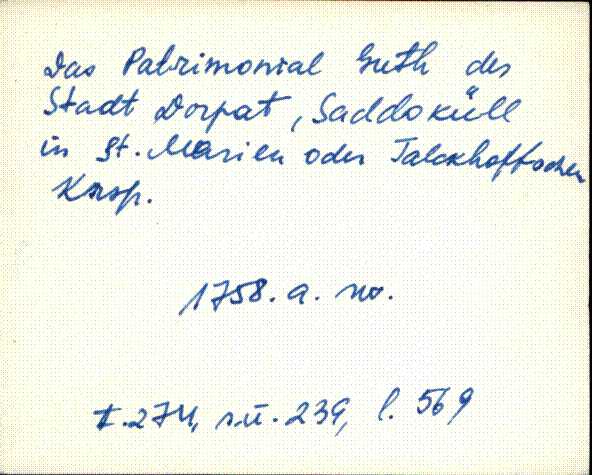 Das Patrimonial Guth der
Stadt Dorpat, Saddoküll
in St. Marien oder Talckhoffschen
Kirsp.
1758. a. no.
I. 274, s.ü. 239, l. 569